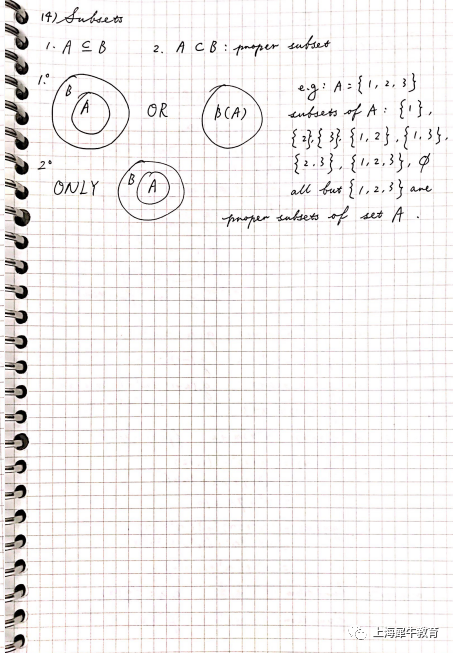 14) Subsets
1. A ⊆ B 2. A ⊂ B : proper subset
1.° B A OR B(A)
e.g: A = {1, 2, 3}
subsets of A : {1},
{2},{3}, {1,2}, {1,3},
{2,3}, {1,2,3}, ∅
all but {1,2,3} are
proper subsets of set A .
2°
ONLY B A
上海犀牛教育